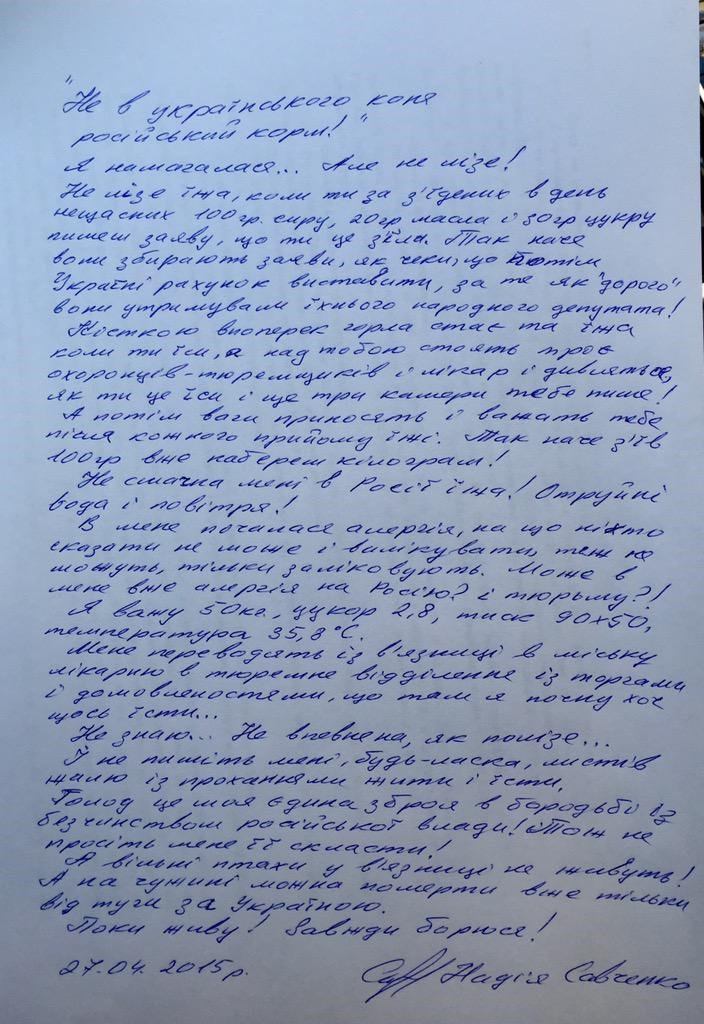 "Не в українського коня
російський корм!"
Я намагалася... Але не лізе!
Не лізе їжа, коли ти за з'їдених в день
нещасних 100гр. сиру, 20гр масла і 30гр цукру
пишеш заяву, що ти це з'їла. Так наче
вони збирають заяви, як чеки, що потім
Україні рахунок виставити, за те як "дорого"
вони утримували їхнього народного депутата!
Кісткою впоперек горла стає та їжа
коли ти їси, а над тобою стоять троє
охоронців-тюремщиків і лікар і дивляться,
як ти це їси і ще три камери тебе пише!
А потім ваги приносять і важать тебе
після кожного прийому їжі. Так наче з'їв
100гр вже набереш кілограм!
Не смачна мені в Росії їжа! Отруйні
вода і повітря!
В мене почалася алергія, на що ніхто
сказати не може і вилікувати теж не
можуть, тільки заліковують. Може в
мене вже алергія на Росію? і тюрьму?!
Я важу 50кг., цукор 2,8, тиск 90×50,
температура 35,8°С.
Мене переводять із в'язниці в міську
лікарню в тюремне відділення із торгами
і домовленостями, що там я почну хоч
щось їсти...
Не знаю... Не впевнена, як полізе...
І не пишіть мені, будь-ласка, листів
жалю із проханнями жити і їсти.
Голод це моя єдина зброя в бородьбі із
безчинством російської влади! Тож не
просіть мене її скласти!
А вільні птахи у в'язниці не живуть!
А на чужині можна померти вже тільки
від туги за Україною.
Поки живу! Завжди борюся!
27.04.2015р. Надія Савченко